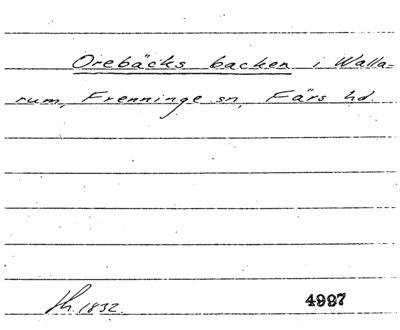 Orebäcks backen i Walla=
rum, Frenninge sn, Färs hd.
h. 1832.
4997